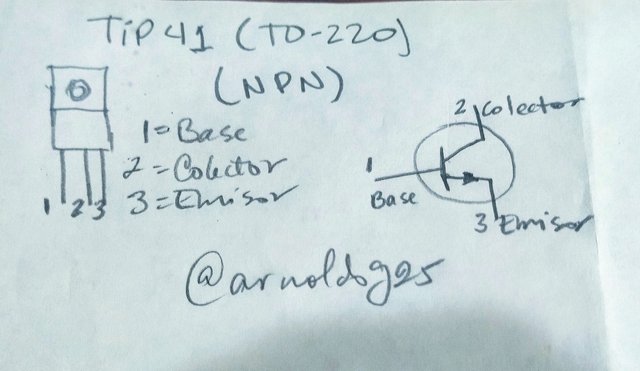 TiP41 (TO-220)
(NPN)
1=Base
2=Colector
3=Emisor
1 2 3
2 Colector
1
Base
3 Emisor
@arnoldsg25